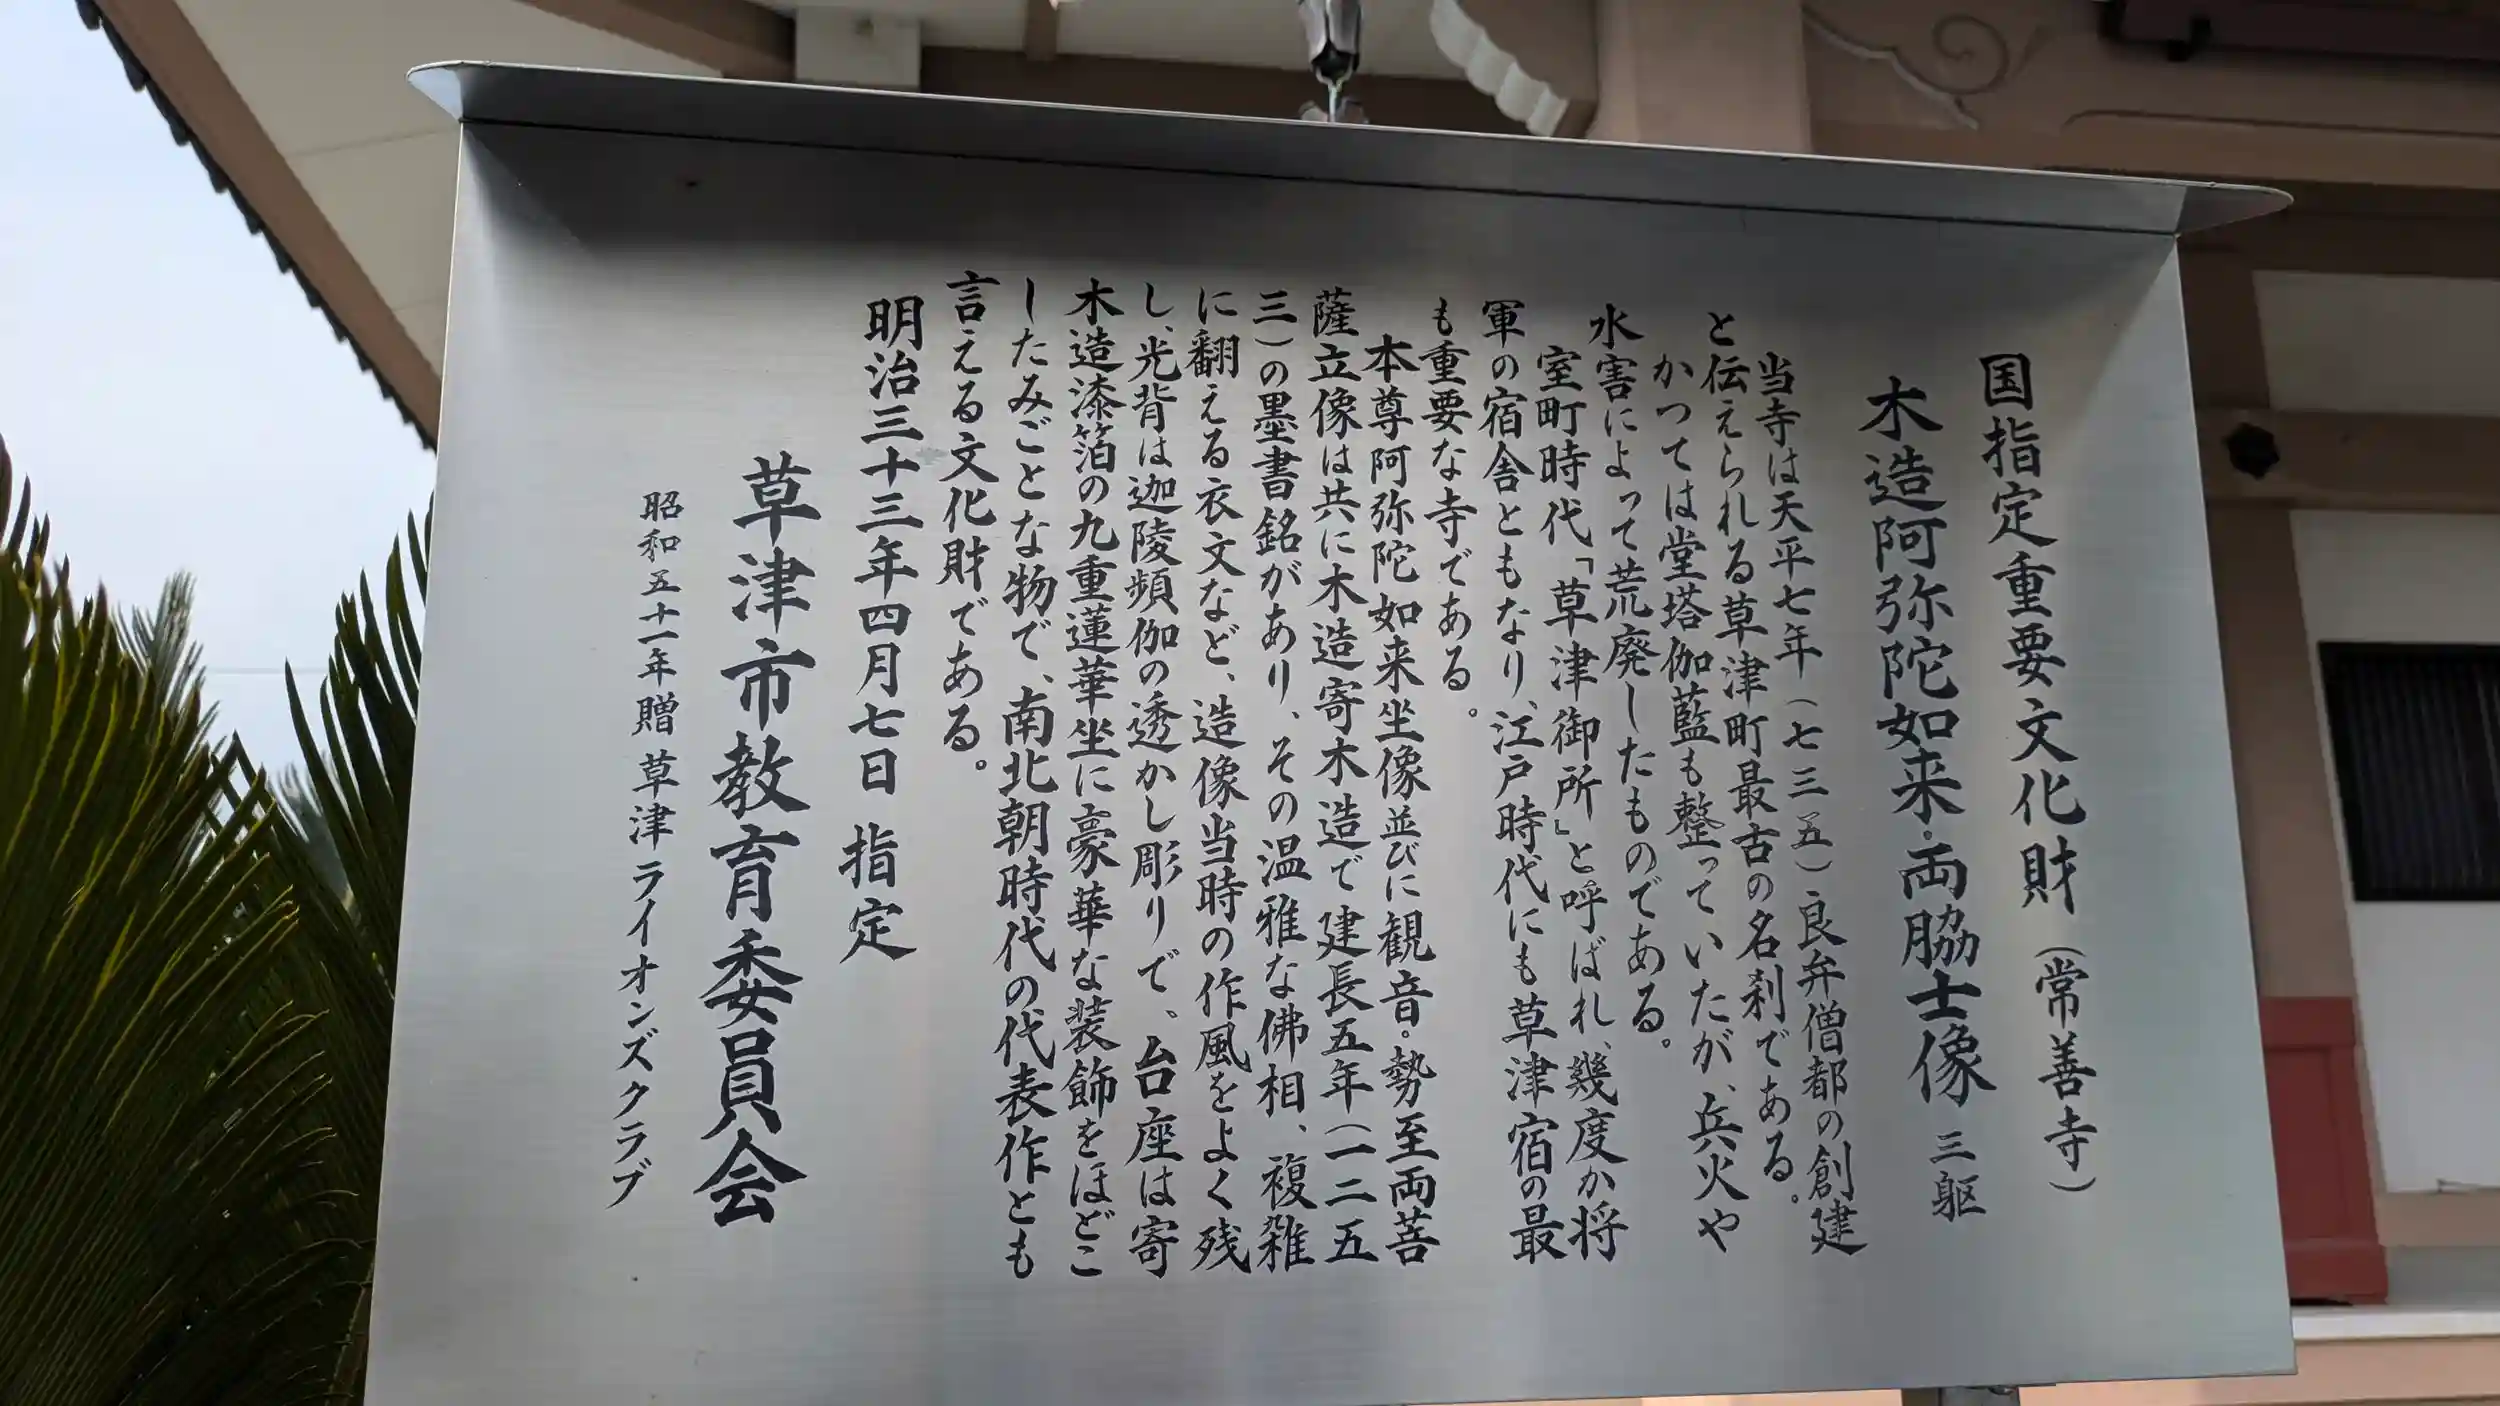 国指定重要文化財（常善寺）
木造阿弥陀如来・両脇士像 三躯
当寺は天平七年（七三五）良弁僧都の創建
と伝えられる草津町最古の名刹である。
かつては堂塔伽藍も整っていたが、兵火や
水害によって荒廃したものである。
室町時代「草津御所」と呼ばれ、幾度か将
軍の宿舎ともなり、江戸時代にも草津宿の最
も重要な寺である。
本尊阿弥陀如来坐像並びに観音・勢至両菩
薩立像は共に木造寄木造で建長五年（一二五
三）の墨書銘があり、その温雅な佛相、複雑
に翻える衣文など、造像当時の作風をよく残
し、光背は迦陵頻伽の透かし彫りで、台座は寄
木造漆箔の九重蓮華坐に豪華な装飾をほどこ
したみごとな物で、南北朝時代の代表作とも
言える文化財である。
明治三十三年四月七日 指定
草津市教育委員会
昭和五十一年贈 草津ライオンズクラブ